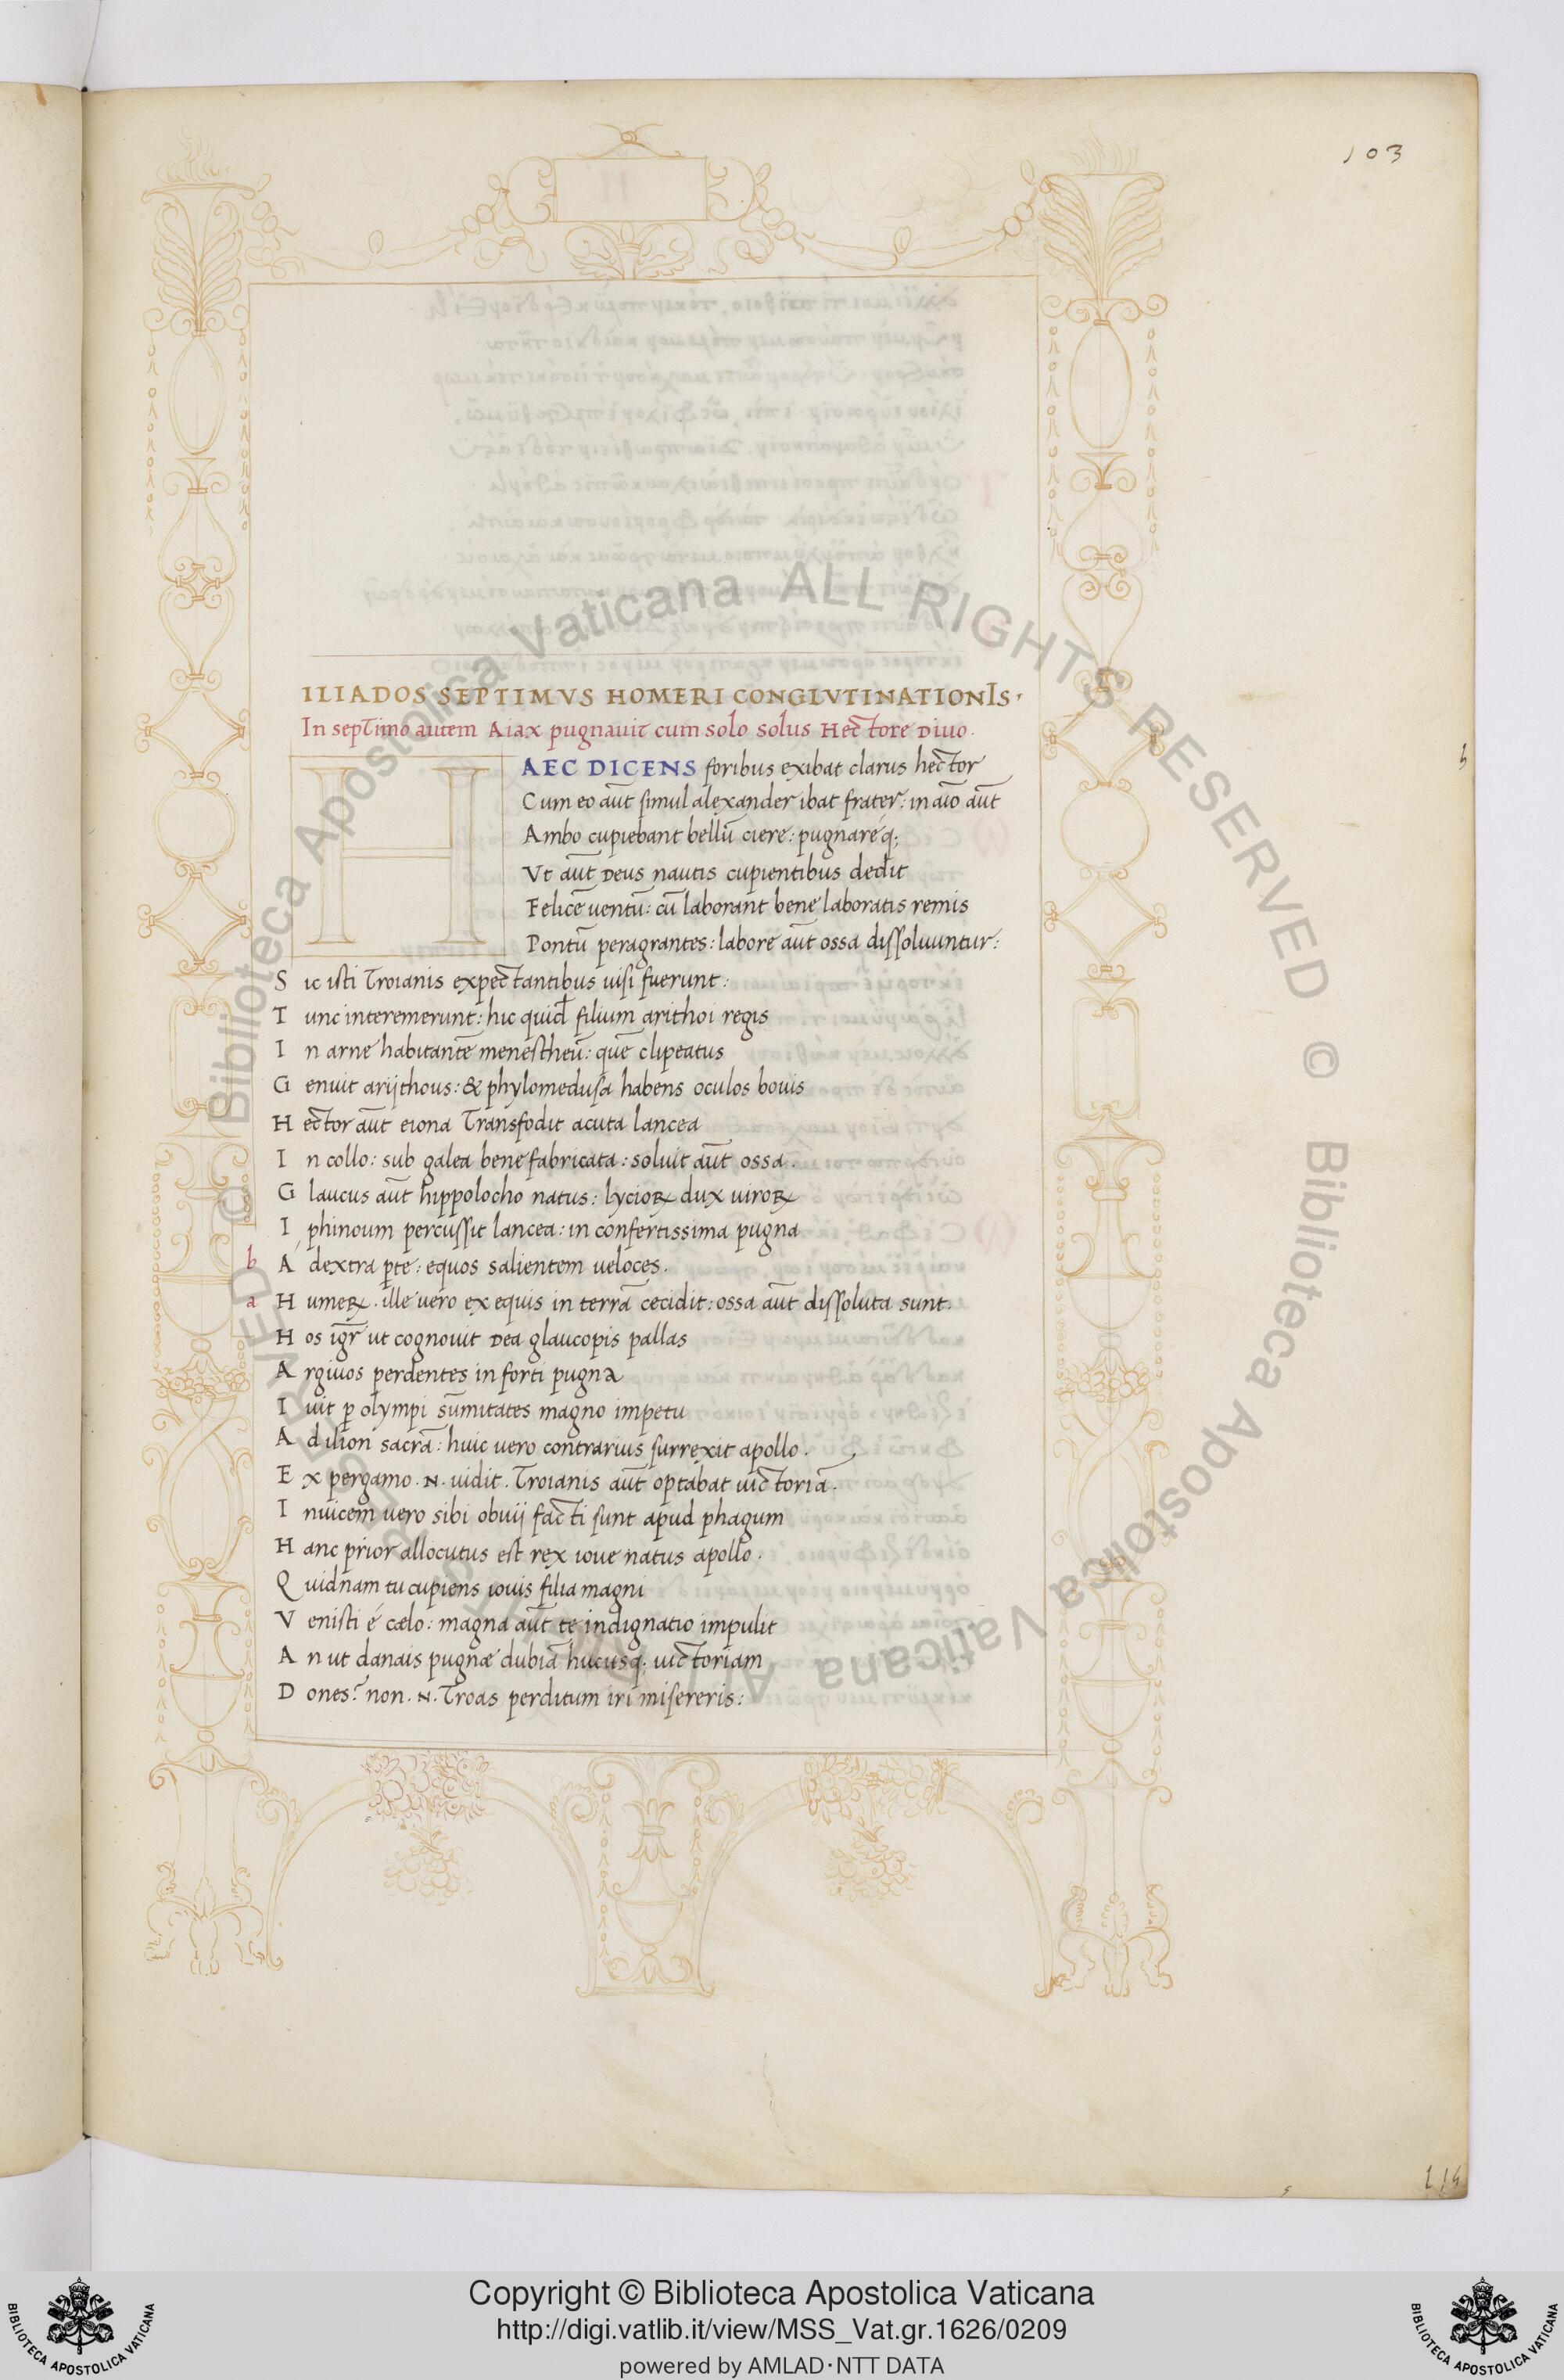 103
ILIADOS SEPTIMVS HOMERI CONGLVTINATIONIS.
In septimo autem Aiax pugnauit cum solo solus Hectore Diuo.
HAEC DICENS foribus exibat clarus hector
Cum eo aūt simul alexander ibat frater: in aīo aūt
Ambo cupiebant bellū ciere: pugnareq;
Vt aūt Deus nautis cupientibus dedit
Felicē uentū: cū laborant bene laboratis remis
Pontū peragrantes: labore aūt ossa dissoluuntur:
Sic isti Troianis expectantibus uisi fuerunt:
Tunc interemerunt: hic quid̄ filium arithoi regis
In arne habitantē menestheū: quē clipeatus
Genuit arijthous: & phylomedusa habens oculos bouis
Hector aūt eiona Transfodit acuta lancea
In collo: sub galea bene fabricata: soluit aūt ossa.
Glaucus aūt hippolocho natus: lycioꝝ dux uiroꝝ
Iphinoum percussit lancea: in confertissima pugna
b Á dextra ꝑte: equos salientem ueloces.
a Humeꝝ. ille uero ex equis in terrā cecidit: ossa aūt dissoluta sunt.
Hos igr̄ ut cognouit Dea glaucopis pallas
Argiuos perdentes in forti pugna
Iuit ꝑ olympi sūmitates magno impetu
Ad ilion sacrā: huic uero contrarius surrexit apollo.
Ex pergamo .N. uidit. Troianis aūt optabat uictoriā.
Inuicem uero sibi obuij facti sunt apud phagum
Hanc prior allocutus est rex ioue natus apollo.
Quidnam tu cupiens iouis filia magni
Venisti é cælo: magna aūt te indignatio impulit
An ut danais pugnæ dubiā hucusq; uictoriam
Dones? non .N. Troas perditum iri misereris:
Biblioteca Apostolica Vaticana ALL RIGHTS RESERVED ©
Biblioteca Apostolica Vaticana ALL RIGHTS RESERVED ©
Copyright © Biblioteca Apostolica Vaticana
http://digi.vatlib.it/view/MSS_Vat.gr.1626/0209
powered by AMLAD·NTT DATA
BIBLIOTECA APOSTOLICA VATICANA
BIBLIOTECA APOSTOLICA VATICANA